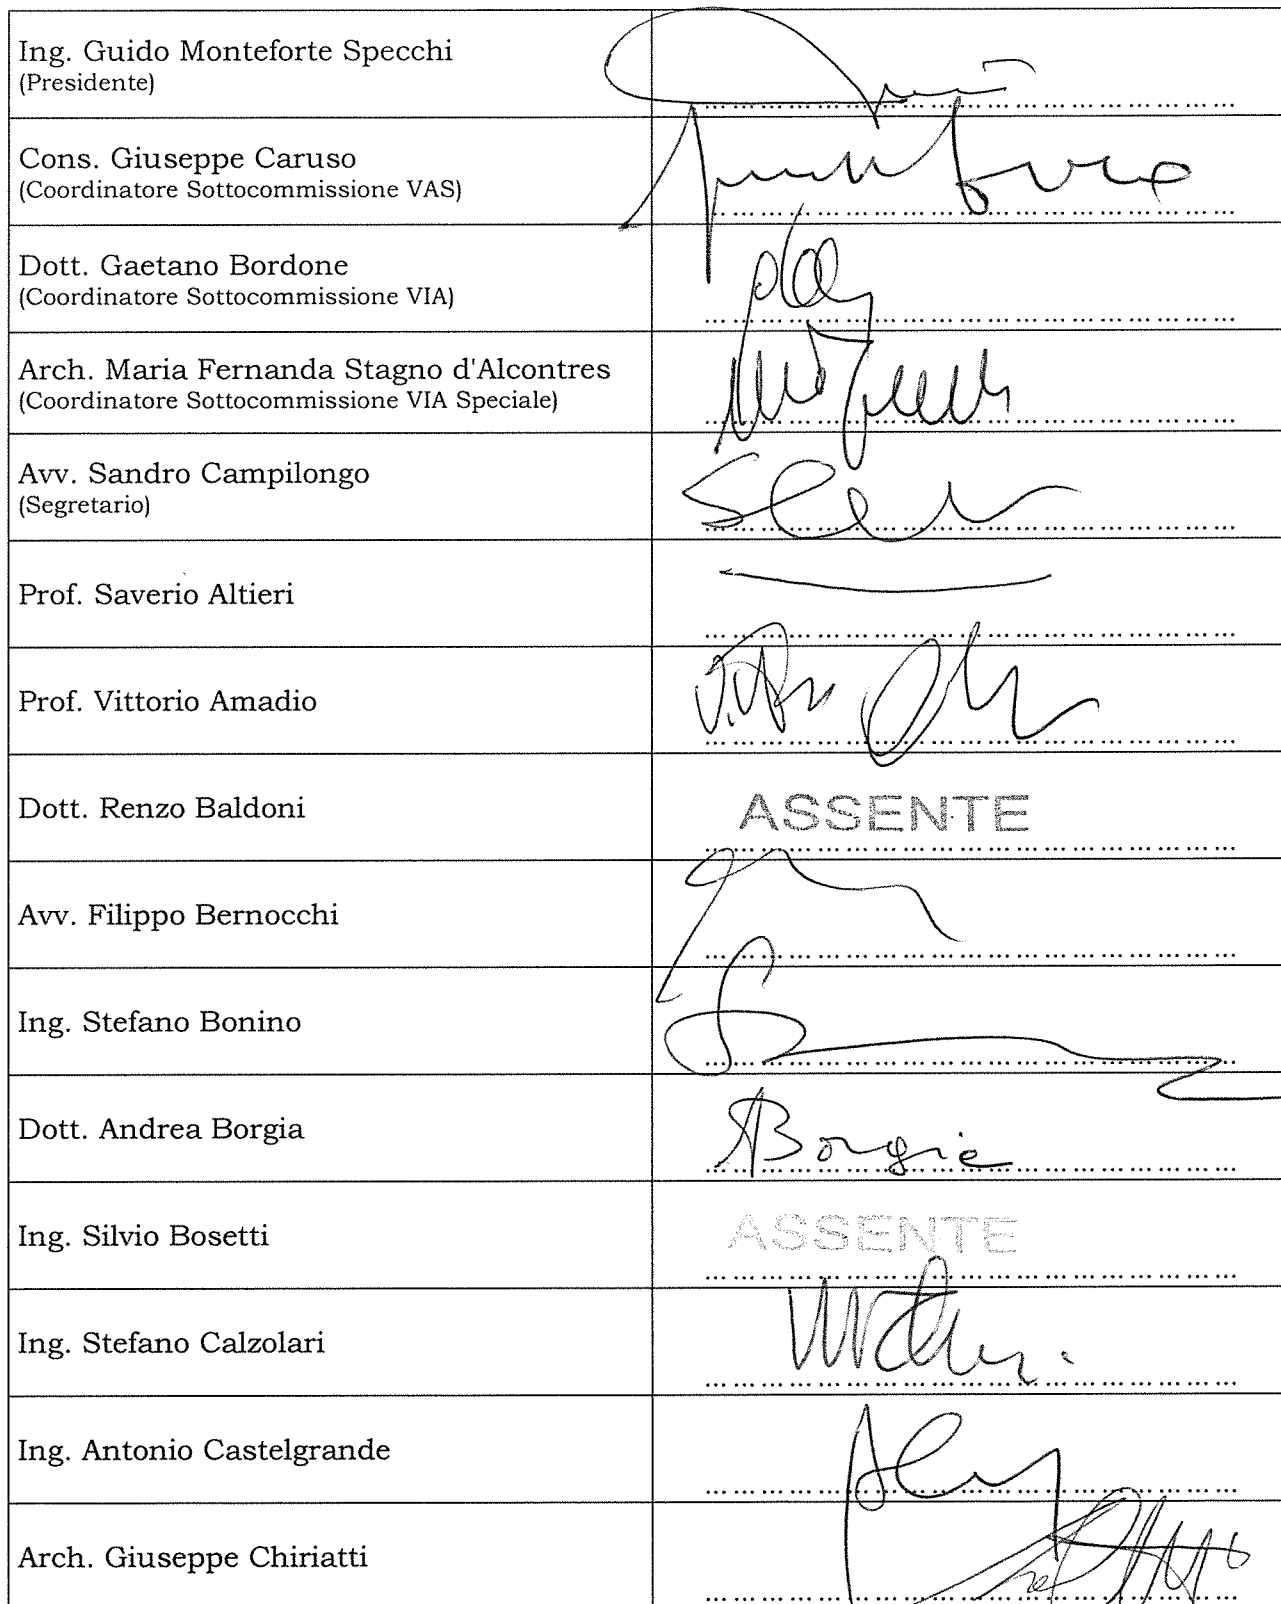 Ing. Guido Monteforte Specchi
(Presidente)
Cons. Giuseppe Caruso
(Coordinatore Sottocommissione VAS)
Dott. Gaetano Bordone
(Coordinatore Sottocommissione VIA)
Arch. Maria Fernanda Stagno d'Alcontres
(Coordinatore Sottocommissione VIA Speciale)
Avv. Sandro Campilongo
(Segretario)
Prof. Saverio Altieri
Prof. Vittorio Amadio
Dott. Renzo Baldoni
ASSENTE
Avv. Filippo Bernocchi
Ing. Stefano Bonino
Dott. Andrea Borgia
ABorgia
Ing. Silvio Bosetti
ASSENTE
Ing. Stefano Calzolari
Ing. Antonio Castelgrande
Arch. Giuseppe Chiriatti